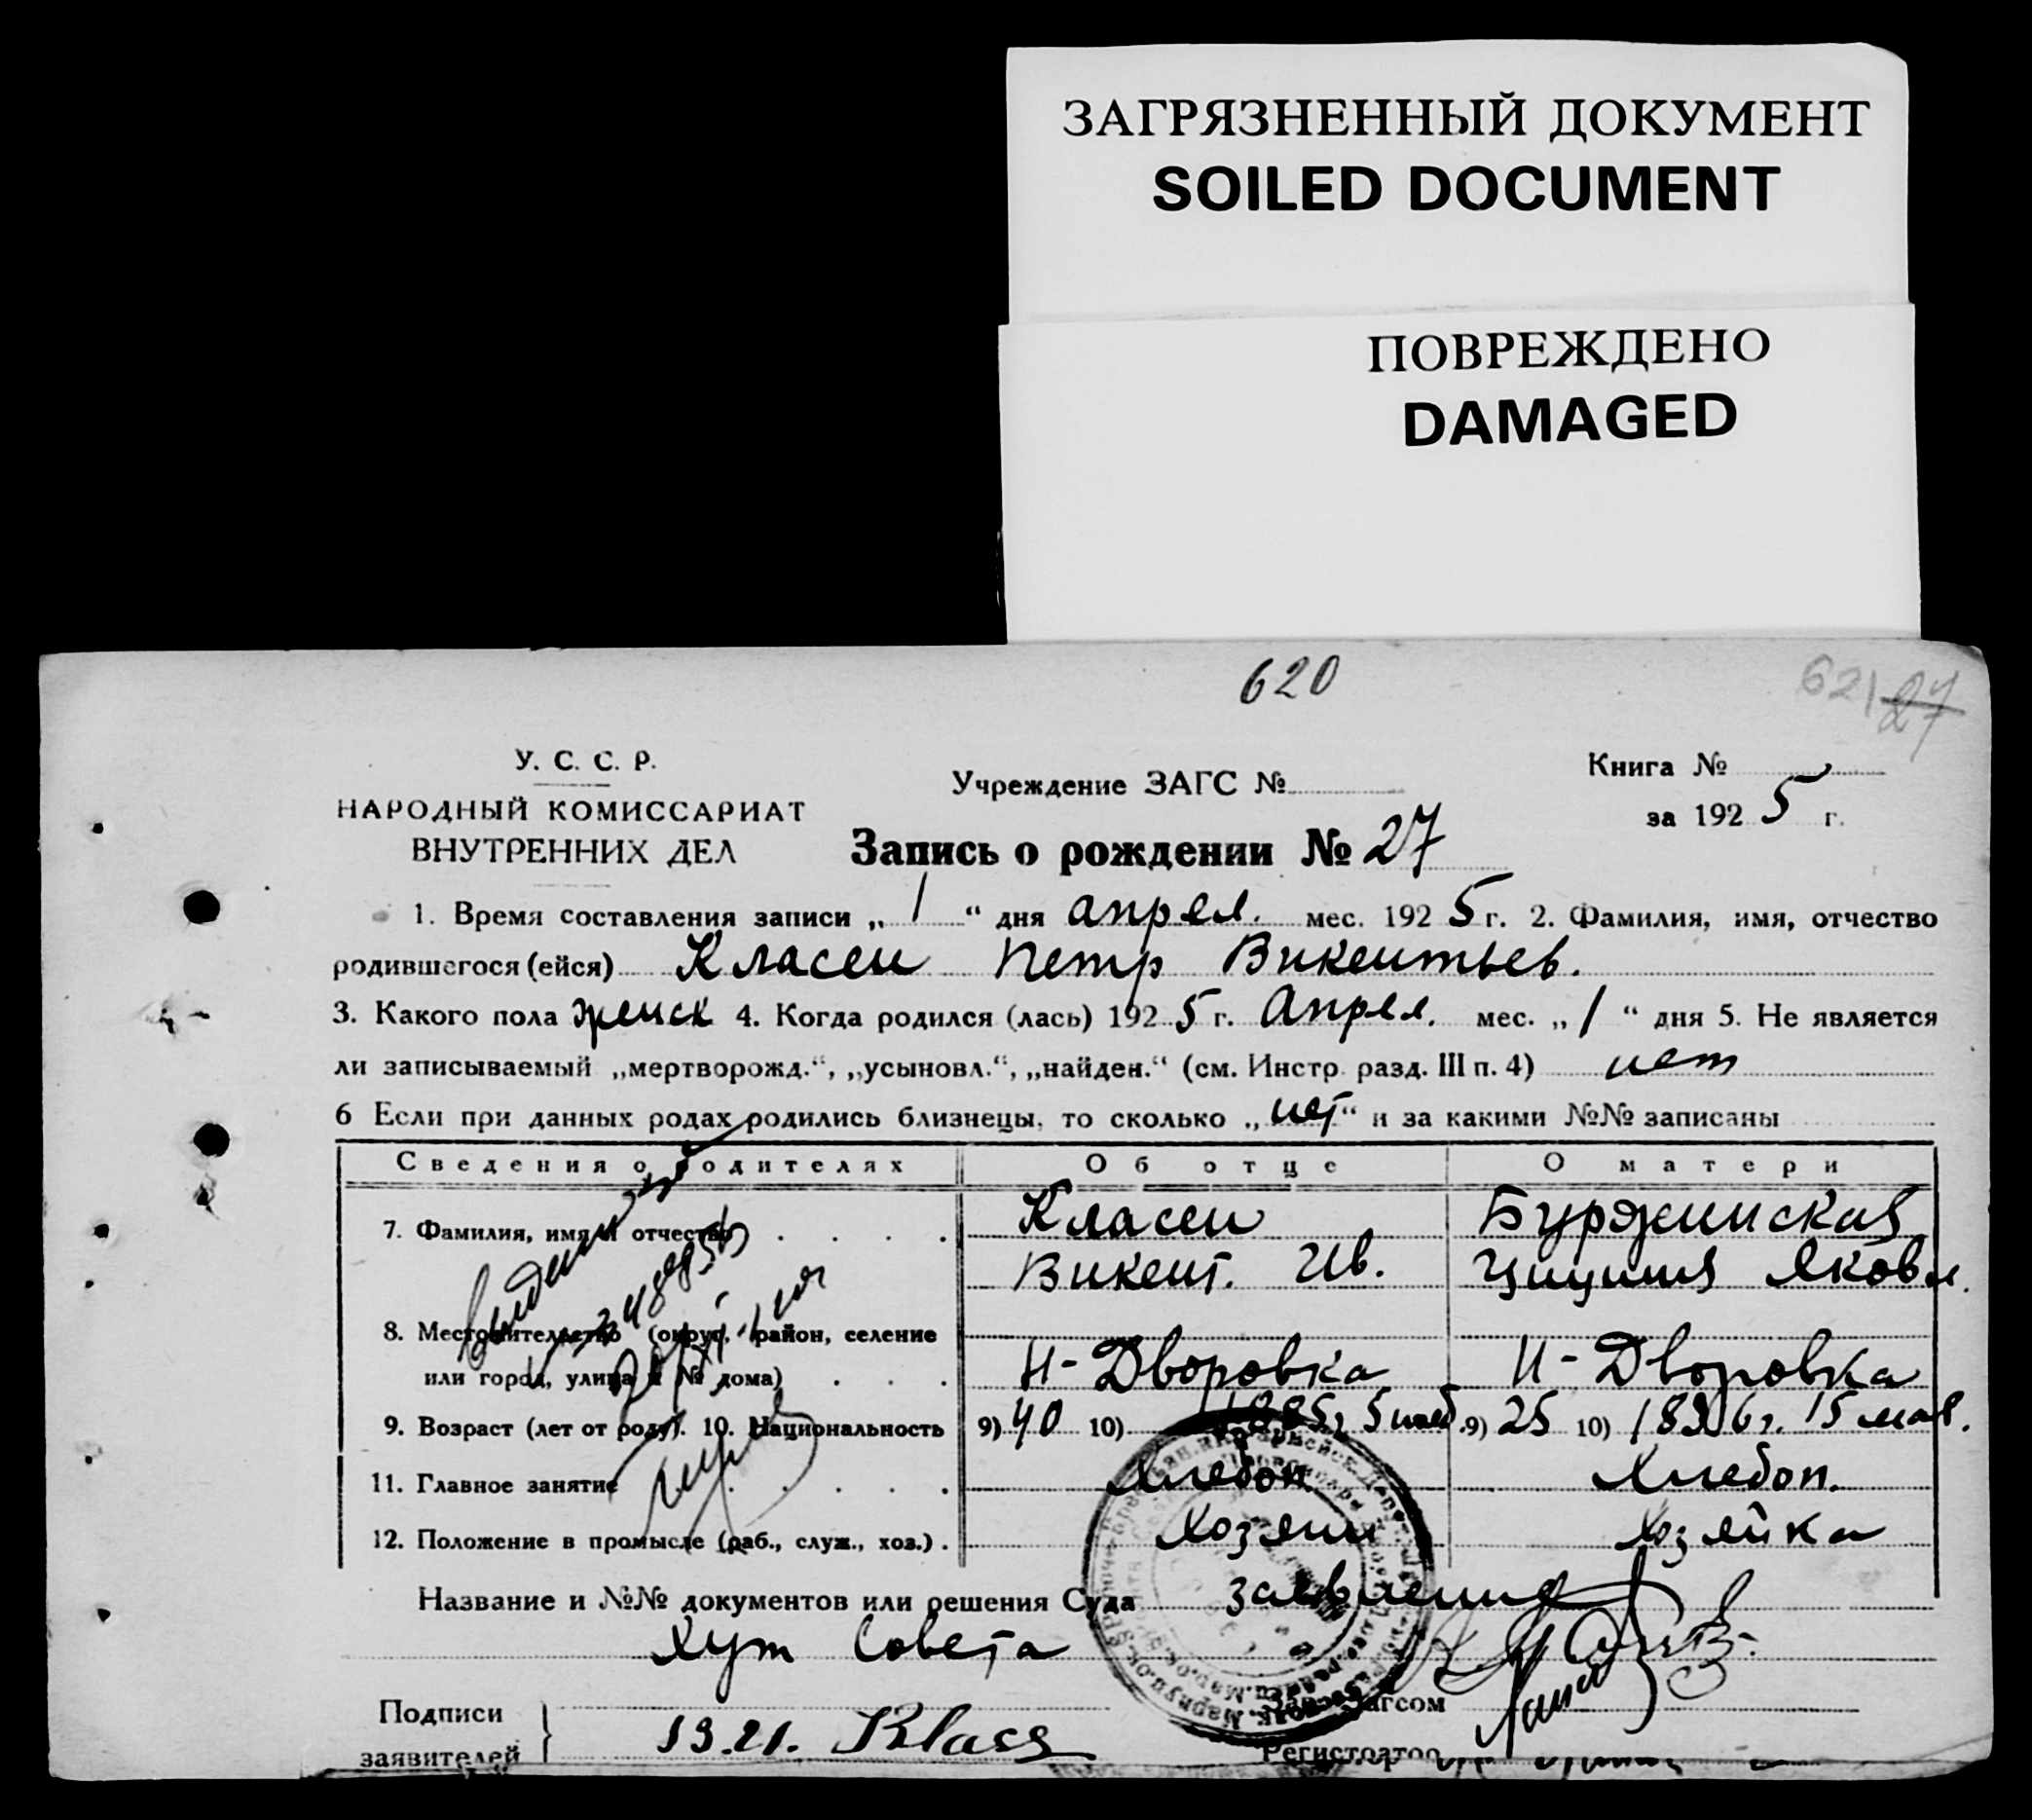 ЗАГРЯЗНЕННЫЙ ДОКУМЕНТ
SOILED DOCUMENT
ПОВРЕЖДЕНО
DAMAGED
620
621 27
У. С. С. Р.
НАРОДНЫЙ КОМИССАРИАТ
ВНУТРЕННИХ ДЕЛ
Учреждение ЗАГС №
Книга №
за 1925 г.
Запись о рождении № 27
1. Время составления записи „ 1 “ дня апрел. мес. 1925 г. 2. Фамилия, имя, отчество
родившегося (ейся) Класен Петр Викентьев.
3. Какого пола женск 4. Когда родился (лась) 1925 г. Апрел. мес. „ 1 “ дня 5. Не является
ли записываемый „мертворожд.“, „усыновл.“, „найден.“ (см. Инстр. разд. III п. 4) нет
6 Если при данных родах родились близнецы, то сколько „ нет “ и за какими №№ записаны
Сведения о родителях Об отце О матери
7. Фамилия, имя и отчество Класен Буржинская
Викент. Ив. Яковл.
8. Местожительство (округ, район, селение
или город, улица и № дома) Н-Дворовка Н-Дворовка
9. Возраст (лет от роду). 10. Национальность 9) 40 10) 1885г 9) 25 10)
11. Главное занятие Хлебоп. Хлебоп.
12. Положение в промысле (раб., служ., хоз.) Хозяин Хозяйка
Название и №№ документов или решения Суда заявления
Хут Совета
Подписи
заявителей
Klass
Зав. Загсом
Регистратор